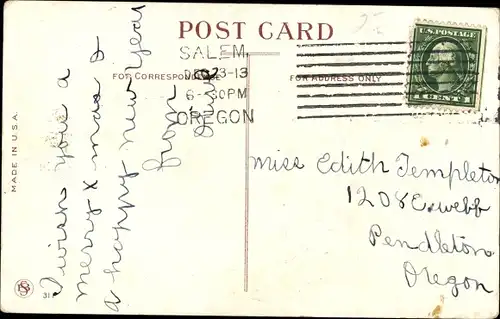 POST CARD
SALEM,
DEC 23-13
6-30PM
OREGON
FOR CORRESPONDENCE
FOR ADDRESS ONLY
U.S. POSTAGE
1 CENT 1
MADE IN U.S.A.
I wish you a
merry X mas &
a happy new year
from
Miss Edith Templeton
1208 E. webb
Pendleton
Oregon
31